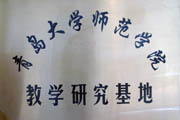 青岛大学师范学院
教学研究基地